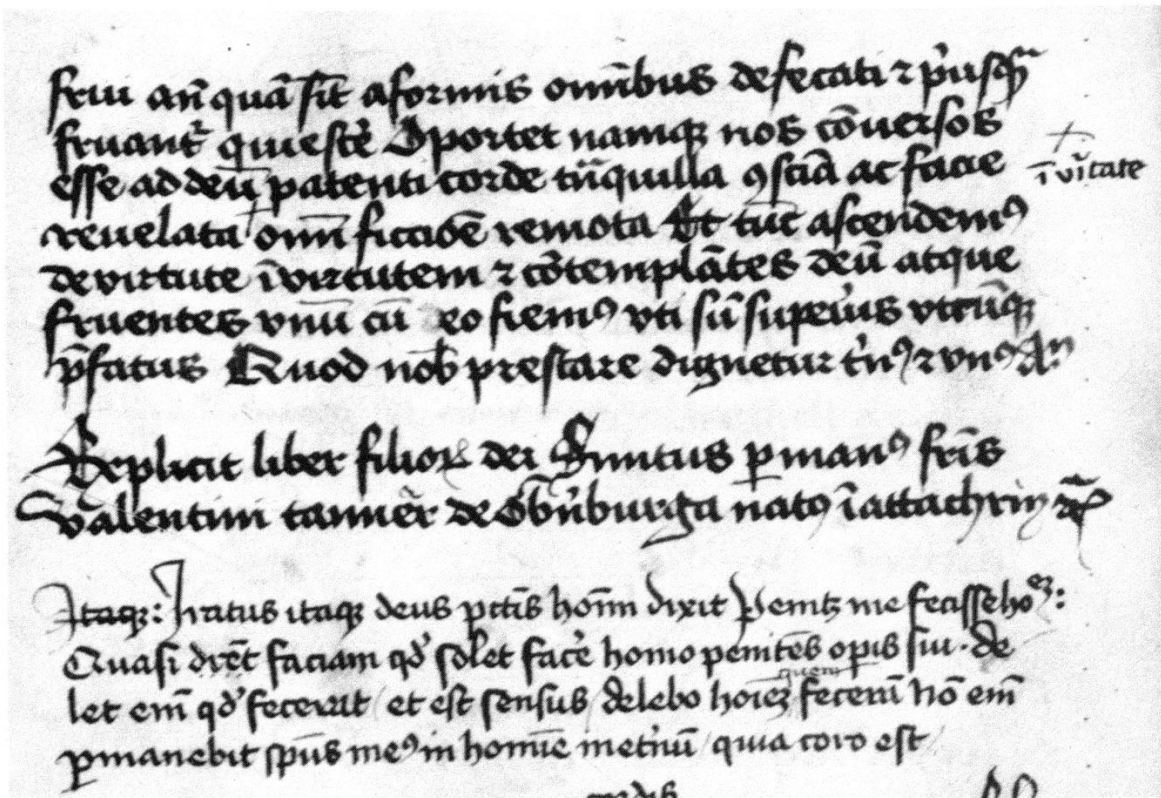 frui an̄ quā sīt a formis omībus defecati ⁊ p'usqᷓ
fruant᷑ quiescēt Oportet namqꝫ nos cōuersos
esse ad deū patenti corde tᷓnquilla ꝯsciā ac facie
reuelata omī ficcōe remota Et tūc ascendemꝰ
de virtute ī virtutem ⁊ cōtemplātes deū atque
fruentes vnū cū eo fiemꝰ vti sū supeiꝰ vtcūqꝫ
p̄fatus Quod nob̄ prestare dignetur t'nꝰ ⁊ vnꝰ
ī v̄itate
Explicit liber filioꝝ dei Finitus ꝑ manꝰ fr̄is
Valentini
Itaqꝫ: Iratus itaqꝫ deus pctīs hoīm dixit Penitꝫ me fecisse hoꝫ:
Quasi dicēt faciam qd̛ solet facē homo penitēs oꝑis sui · de
quem
let em̄ qd̛ fecerat / et est sensus / delebo hoīeꝫ fecerā nō em̄
ꝑmanebit spūs meꝰ in homīe met'nū / quia caro est /
cordis